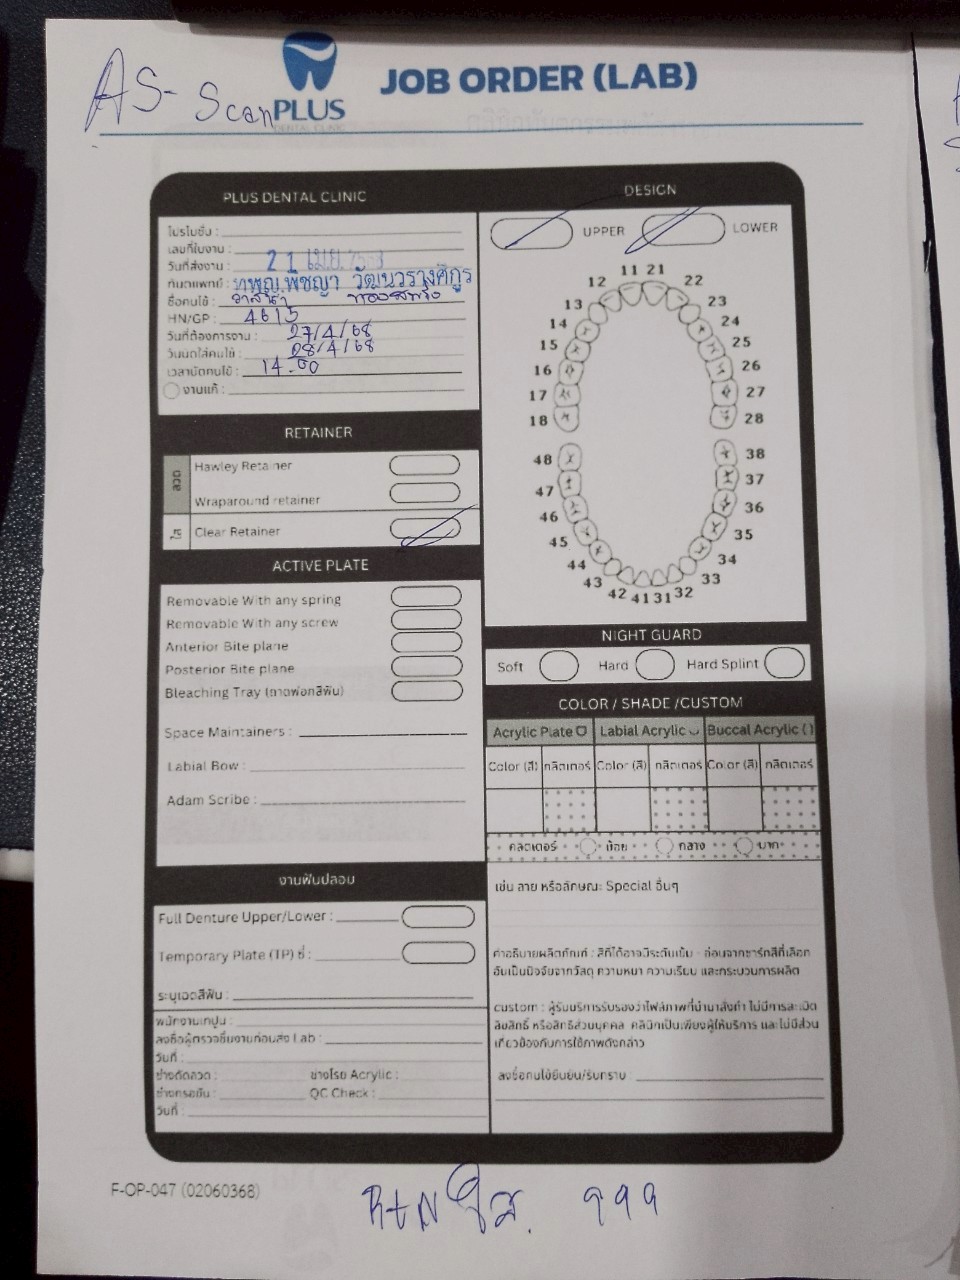 AS- Scan
PLUS
DENTAL CLINIC
JOB ORDER (LAB)
PLUS DENTAL CLINIC
โปรโมชั่น :
เลขที่ใบงาน :
วันที่ส่งงาน : 21 เม.ย.
ทันตแพทย์ : ทพญ.พิชญา วัฒนวรางศิกูร
ชื่อคนไข้ :
HN/GP : 4615
วันที่ต้องการงาน : 27/4/68
วันนัดใส่คนไข้ : 28/4/68
เวลานัดคนไข้ : 14.00
งานแก้ :
RETAINER
ลวด
Hawley Retainer
Wraparound retainer
ใส
Clear Retainer
ACTIVE PLATE
Removable With any spring
Removable With any screw
Anterior Bite plane
Posterior Bite plane
Bleaching Tray (ถาดฟอกสีฟัน)
Space Maintainers :
Labial Bow :
Adam Scribe :
งานฟันปลอม
Full Denture Upper/Lower :
Temporary Plate (TP) ซี่ :
ระบุเฉดสีฟัน :
พนักงานเทปูน :
ลงชื่อผู้ตรวจชิ้นงานก่อนส่ง Lab :
วันที่ :
ช่างดัดลวด : ช่างโรย Acrylic :
ช่างกรอขัด : QC Check :
วันที่ :
DESIGN
UPPER LOWER
11 21
12 22
13 23
14 24
15 25
16 26
17 27
18 28
48 38
47 37
46 36
45 35
44 34
43 33
42 41 31 32
NIGHT GUARD
Soft Hard Hard Splint
COLOR / SHADE /CUSTOM
Acrylic Plate Labial Acrylic Buccal Acrylic ( )
Color (สี) กลิตเตอร์ Color (สี) กลิตเตอร์ Color (สี) กลิตเตอร์
กลิตเตอร์ น้อย กลาง มาก
เช่น ลาย หรือลักษณะ Special อื่นๆ
คำอธิบายผลิตภัณฑ์ : สีที่ได้อาจมีระดับเข้ม - อ่อนจากชาร์ทสีที่เลือก
อันเป็นปัจจัยจากวัสดุ ความหนา ความเรียบ และกระบวนการผลิต
custom : ผู้รับบริการรับรองว่าไฟล์ภาพที่นำมาสั่งทำ ไม่มีการละเมิด
ลิขสิทธิ์ หรือสิทธิส่วนบุคคล คลินิกเป็นเพียงผู้ให้บริการ และไม่มีส่วน
เกี่ยวข้องกับการใช้ภาพดังกล่าว
ลงชื่อคนไข้ยืนยัน/รับทราบ :
F-OP-047 (02060368)
RtN ใส. 999